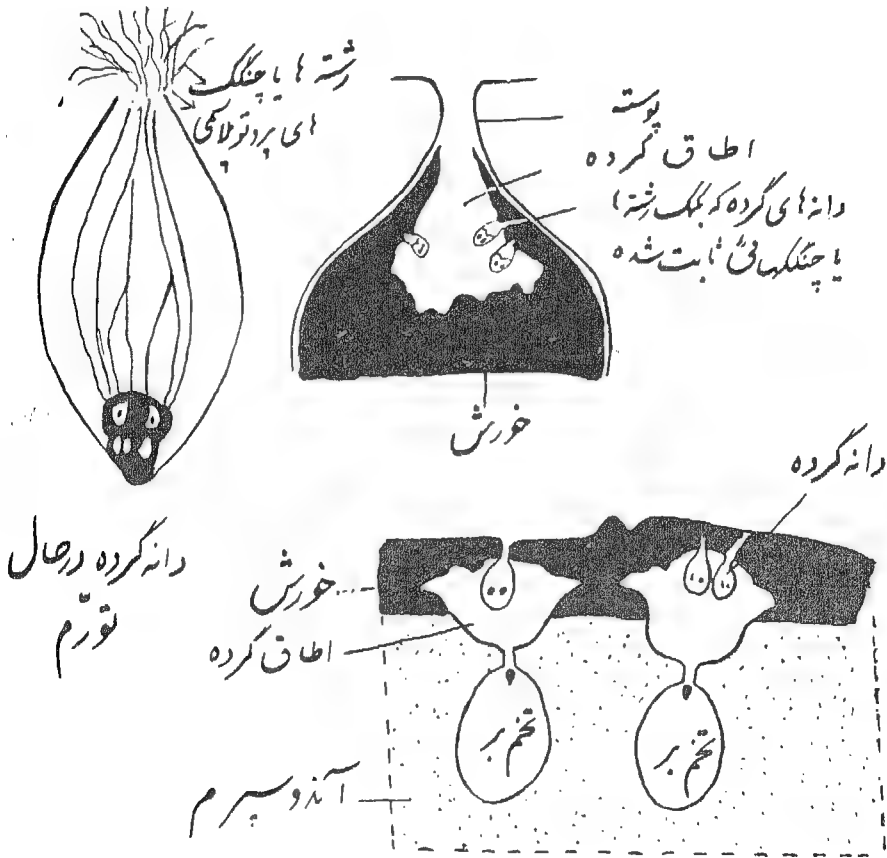 رشته ها یا چنگک
های پروتوپلاسمی
پوسته
اطاق گرده
دانه‌های گرده که بکمک رشته ها
یا چنگکهائی ثابت شده
خورش
دانه گرده
دانه گرده درحال
تورّم
خورش
اطاق گرده
تخم بر
تخم بر
آندوسپرم